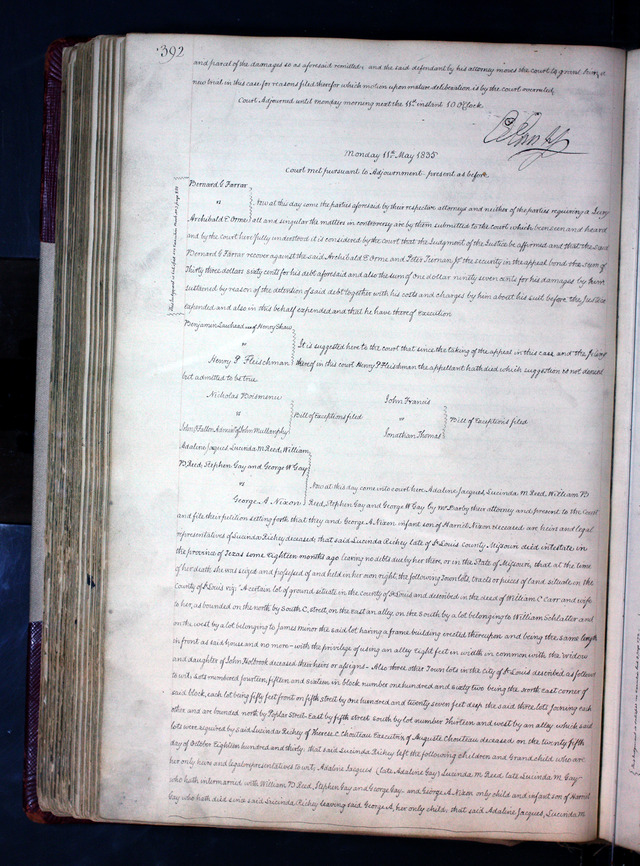 392
and parcel of the damages so as aforesaid remitted, and the said defendant by his attorney moves the court to grant him a
new trial in this case for reasons filed therefor which motion upon mature deliberation is by the court overruled.
Court Adjourned until Monday morning next the 11th instant 10 O'Clock.
Monday 11th May 1835
Court met pursuant to Adjournment present as before.
Bernard G Farrar
vs
Archibald E Orme
Now at this day come the parties aforesaid by their respective attorneys and neither of the parties requiring a Jury
all and singular the matters in controversy are by them submitted to the court which being seen and heard
and by the court here fully understood it is considered by the court that the Judgment of the Justice be affirmed and that the said
Bernard G Farrar recover against the said Archibald E Orme and Peter the security in the appeal bond the sum of
Thirty three dollars sixty cents for his debt aforesaid and also the sum of one dollar ninety seven cents for his damages by him
sustained by reason of the detention of said debt together with his costs and charges by him about his suit before the Justice
expended and also in this behalf expended and that he have thereof execution
Benjamin use of Henry Shaw
vs
Henry P Fleischman
It is suggested here to the court that since the taking of the appeal in this case and the
thereof in this court Henry P Fleishman the appellant hath died which suggestion is not denied
but admitted to be true
Nicholas Boismenu
vs
John O Fallon Admr of John Mullanphy
Bill of Exceptions filed
John Francis
vs
Jonathan Thomas
Bill of Exceptions filed
Adaline Jaques Lucinda M Reed, William
B Reed, Stephen Gay and George W Gay
vs
George A Nixon
Now at this day come into court here Adaline Jaques, Lucinda M Reed, William B
Reed, Stephen Gay and George W Gay by Mr Darby their attorney and present to the Court
and file their petition setting forth that they and George A. Nixon infant son of Harriet Nixon deceased are heirs and legal
representatives of Lucinda Richey deceased; that said Lucinda Richey late of St Louis county Missouri died intestate in
the province of Texas some Eighteen months ago leaving no debts due by her there, or in the State of Missouri, that at the time
of her death she was seized and possessed of and held in her own right, the following Town lots, tracts or pieces of land situate in the
county of St Louis viz: "A certain lot of ground situate in the county of St Louis and described in the deed of William C Carr and wife
to her, as bounded on the north by South C, street, on the east an alley, on the South by a lot belonging to William Schlatter and
on the west by a lot belonging to James Minor the said lot having a frame building erected thereupon and being the same length
in front as said house and no more - with the privilege of using an alley eight feet in width in common with the widow
and daughter of John Holbrook deceased their heirs or assigns - Also three other Town lots in the city of St Louis described as follows
to wit: Lots numbered fourteen, fifteen and sixteen in block number one hundred and sixty two being the north east corner of
said block, each lot being fifty feet front on fifth street by one hundred and twenty seven feet deep the said three lots joining each
other and are bounded north by Poplar Street - East by fifth street south by lot number Thirteen and west by an alley which said
lots were acquired by said Lucinda Richey of Therese C Chouteau Executrix of Auguste Chouteau deceased on the twenty fifth
day of October Eighteen hundred and thirty: that said Lucinda Richey left the following children and Grandchild who are
her only heirs and legal representatives to wit; Adaline Jaques (late Adaline Gay) Lucinda M Reed late Lucinda M Gay
who hath intermarried with William B Reed, Stephen Gay and George Gay and George A Nixon only child and infant son of Harriet
Gay who hath died since said Lucinda Richey leaving said George A, her only child; that said Adaline Jaques, Lucinda M